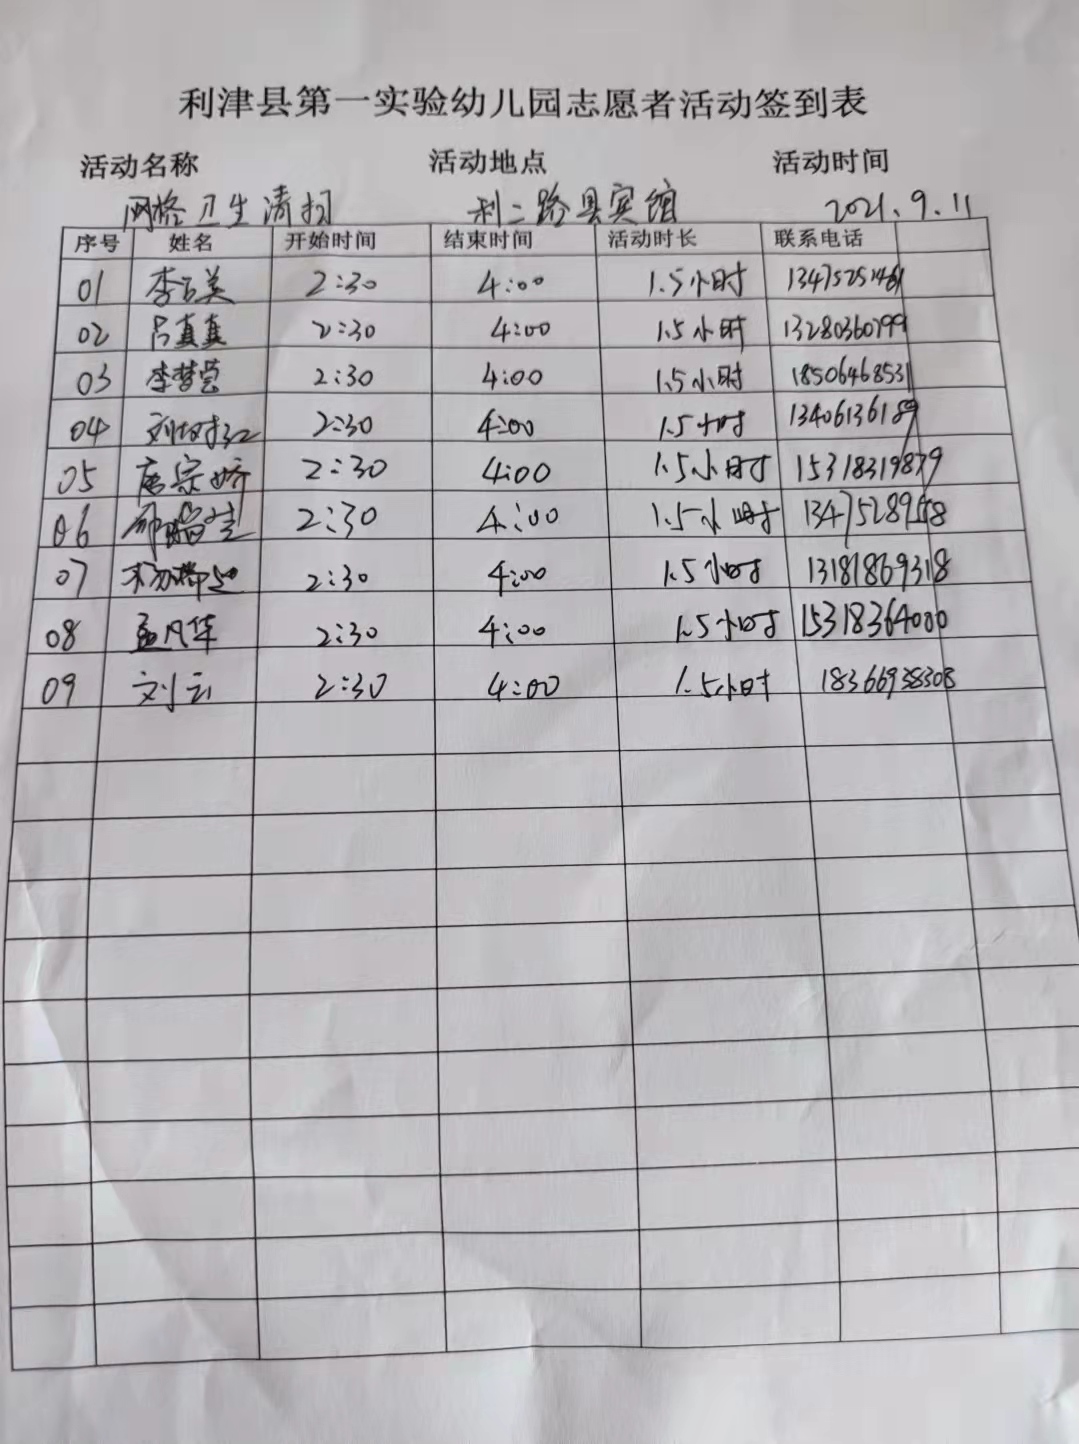 利津县第一实验幼儿园志愿者活动签到表
活动名称 活动地点 活动时间
网格卫生清扫 利二路县宾馆 2021.9.11
序号 姓名 开始时间 结束时间 活动时长 联系电话
01 2:30 4:00 1.5小时
02 吕真真 2:30 4:00 1.5小时 13280360799
03 李梦莹 2:30 4:00 1.5小时 18506468531
04 2:30 4:00 1.5小时 13406136189
05 唐宗娇 2:30 4:00 1.5小时 15318319879
06 2:30 4:00 1.5小时 13475289558
07 2:30 4:00 1.5小时 13181869318
08 孟凡华 2:30 4:00 1.5小时 15318364000
09 刘云 2:30 4:00 1.5小时 18366938308